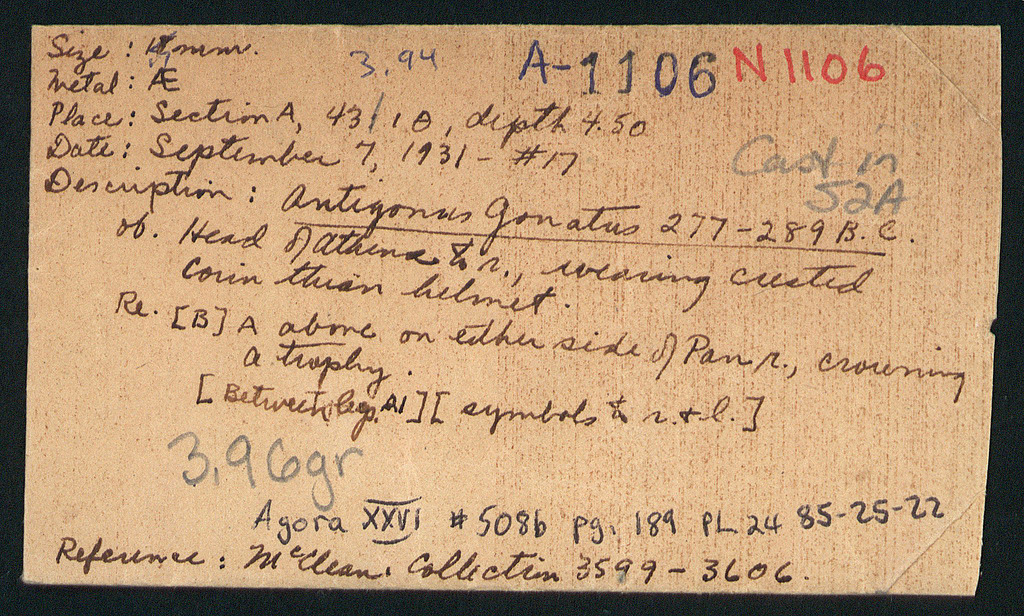 Size: mm. 3.94 A-1106 N1106
Metal: Æ
Place: Section A, 43/1Θ, depth 4.50
Date: September 7, 1931 - #17
Cast in
52A
Description: Antigonus Gonatus 277-289 B.C.
ob. Head of Athena to r., wearing crested
Corinthian helmet.
Re. [B] A above on either side of Pan r., crowning
a trophy.
[Between legs, A1] [symbols to r. & l.]
3.96gr
Agora XXVI #508b pg. 189 PL 24 85-25-22
Reference: McClean Collection 3599-3606.